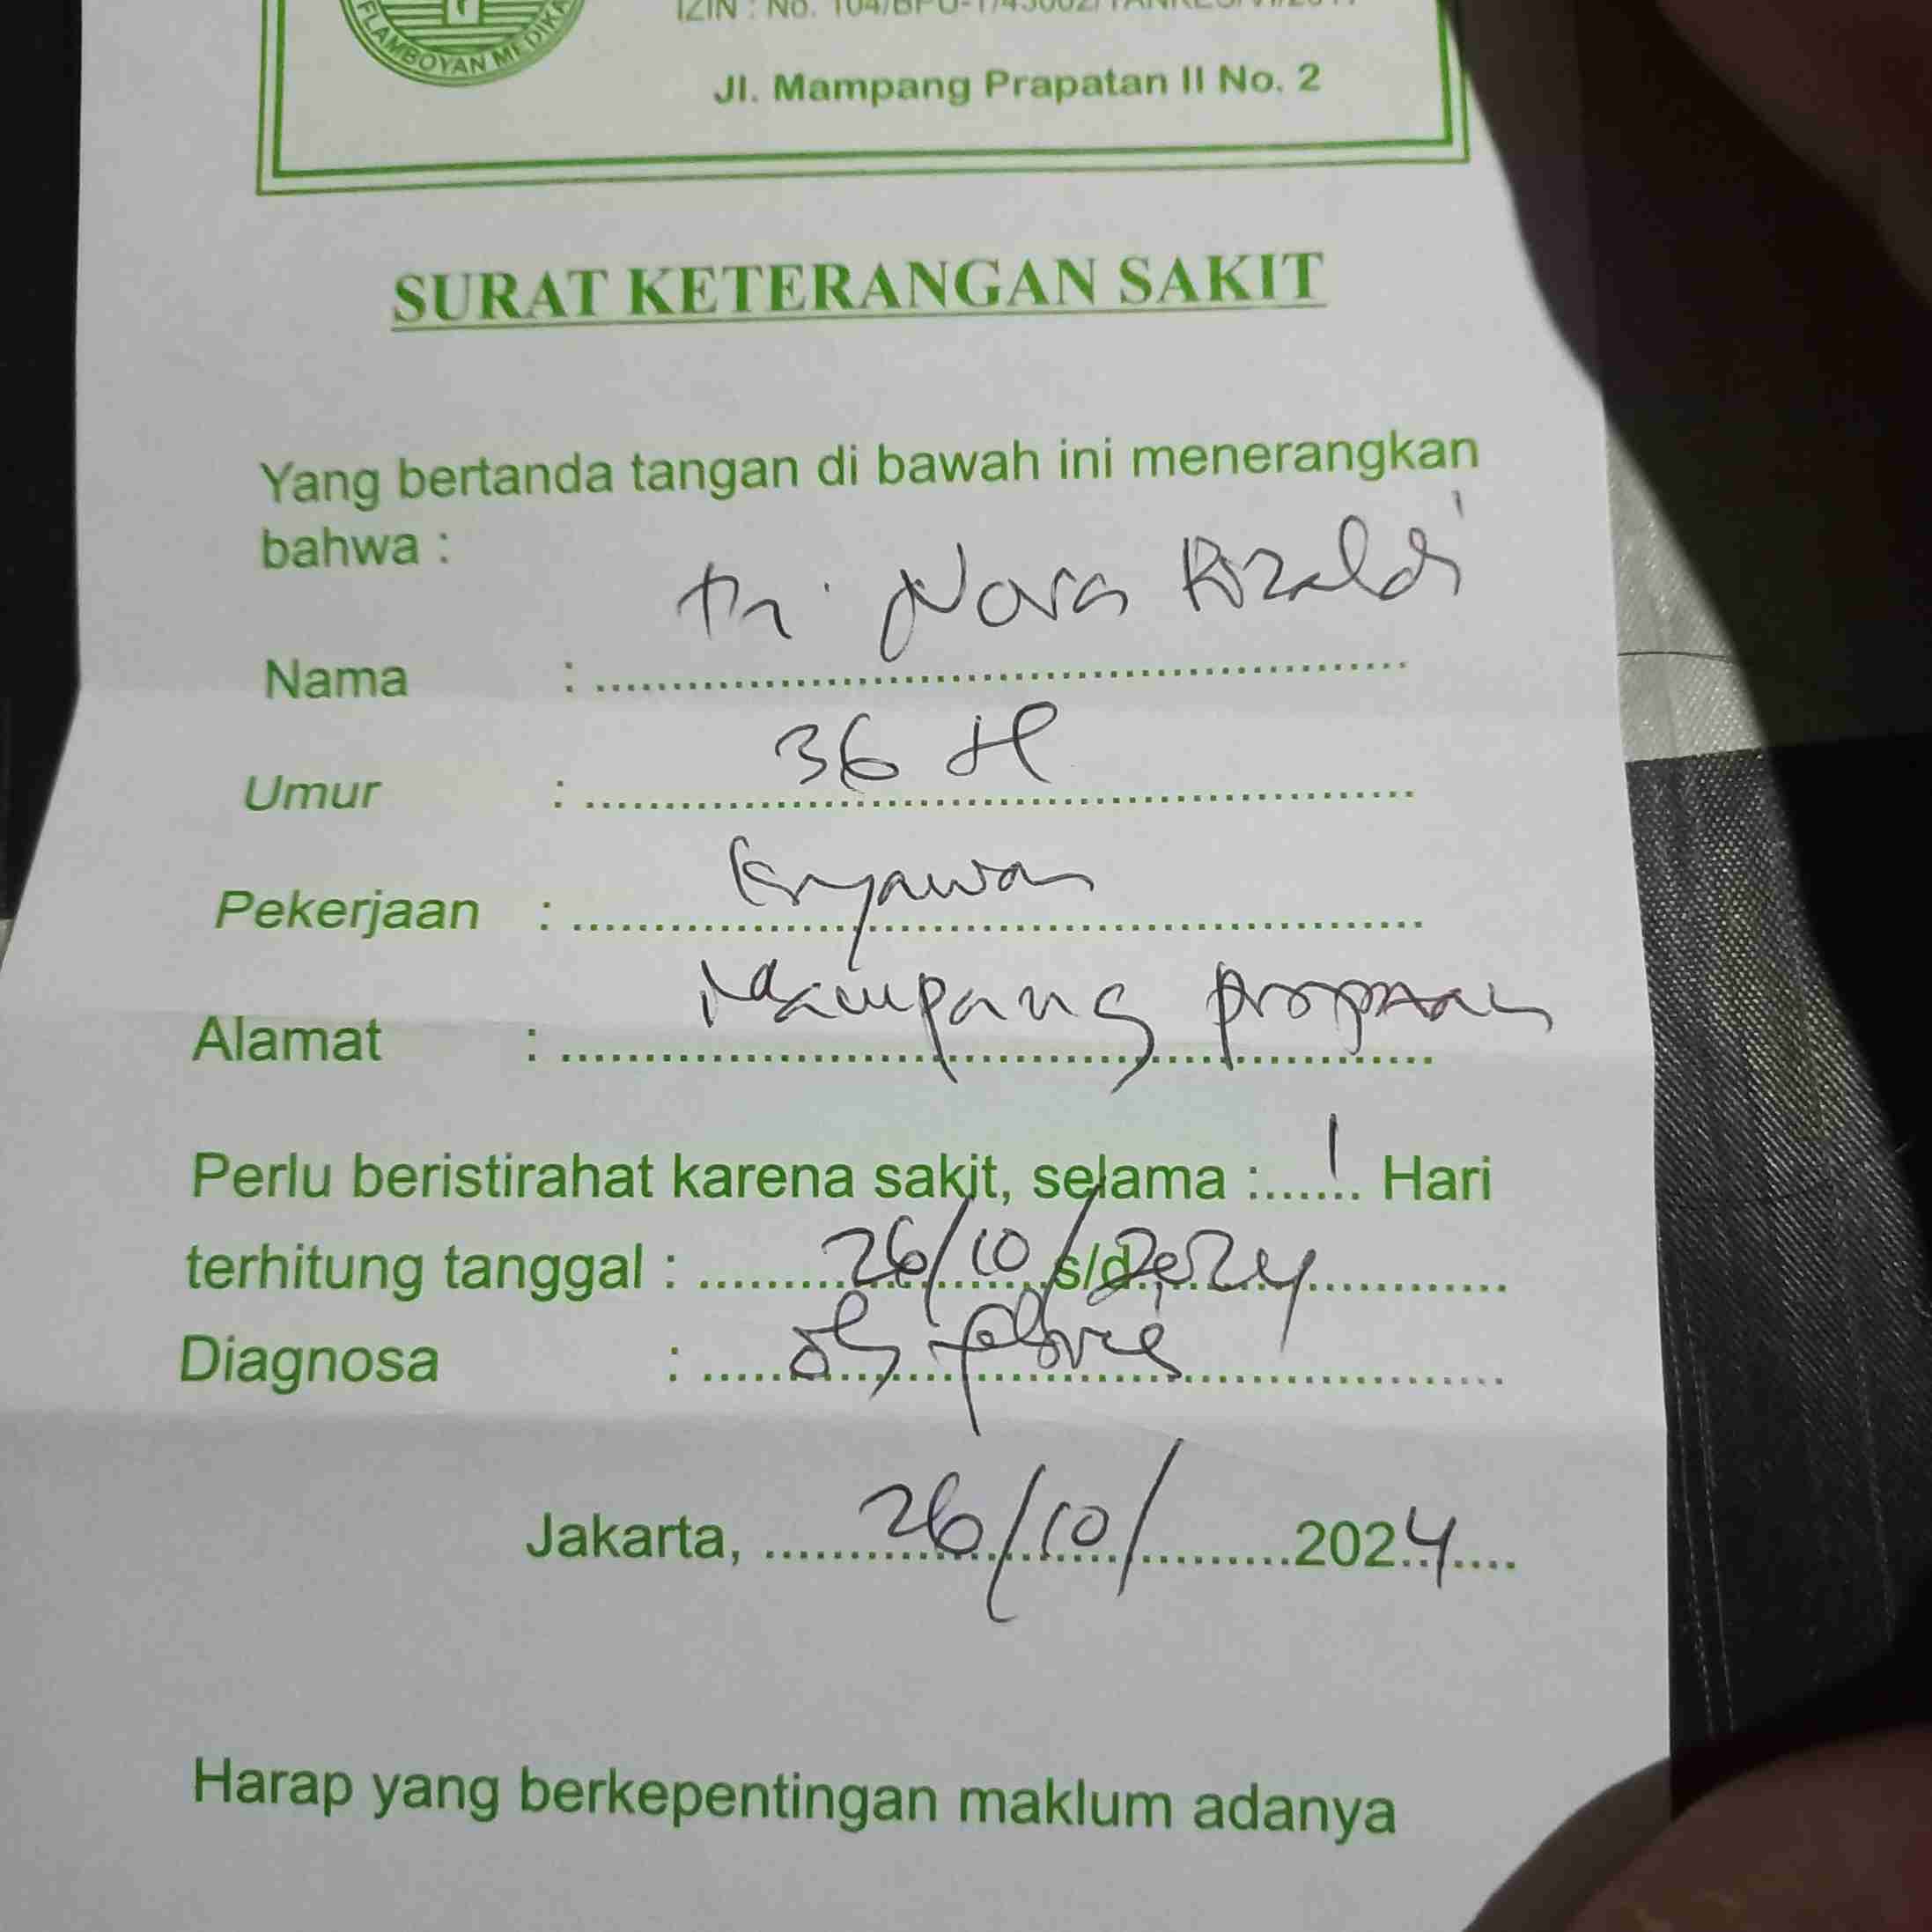 FLAMBOYAN MEDIKA
Jl. Mampang Prapatan II No. 2
SURAT KETERANGAN SAKIT
Yang bertanda tangan di bawah ini menerangkan
bahwa :
Nama : Tn. Nova Rizaldi
Umur : 36 th
Pekerjaan : Karyawan
Alamat : Mampang prapatan
Perlu beristirahat karena sakit, selama : 1 Hari
terhitung tanggal : 26/10/2024 s/d
Diagnosa : Obs febris
Jakarta, 26/10/ 2024
Harap yang berkepentingan maklum adanya